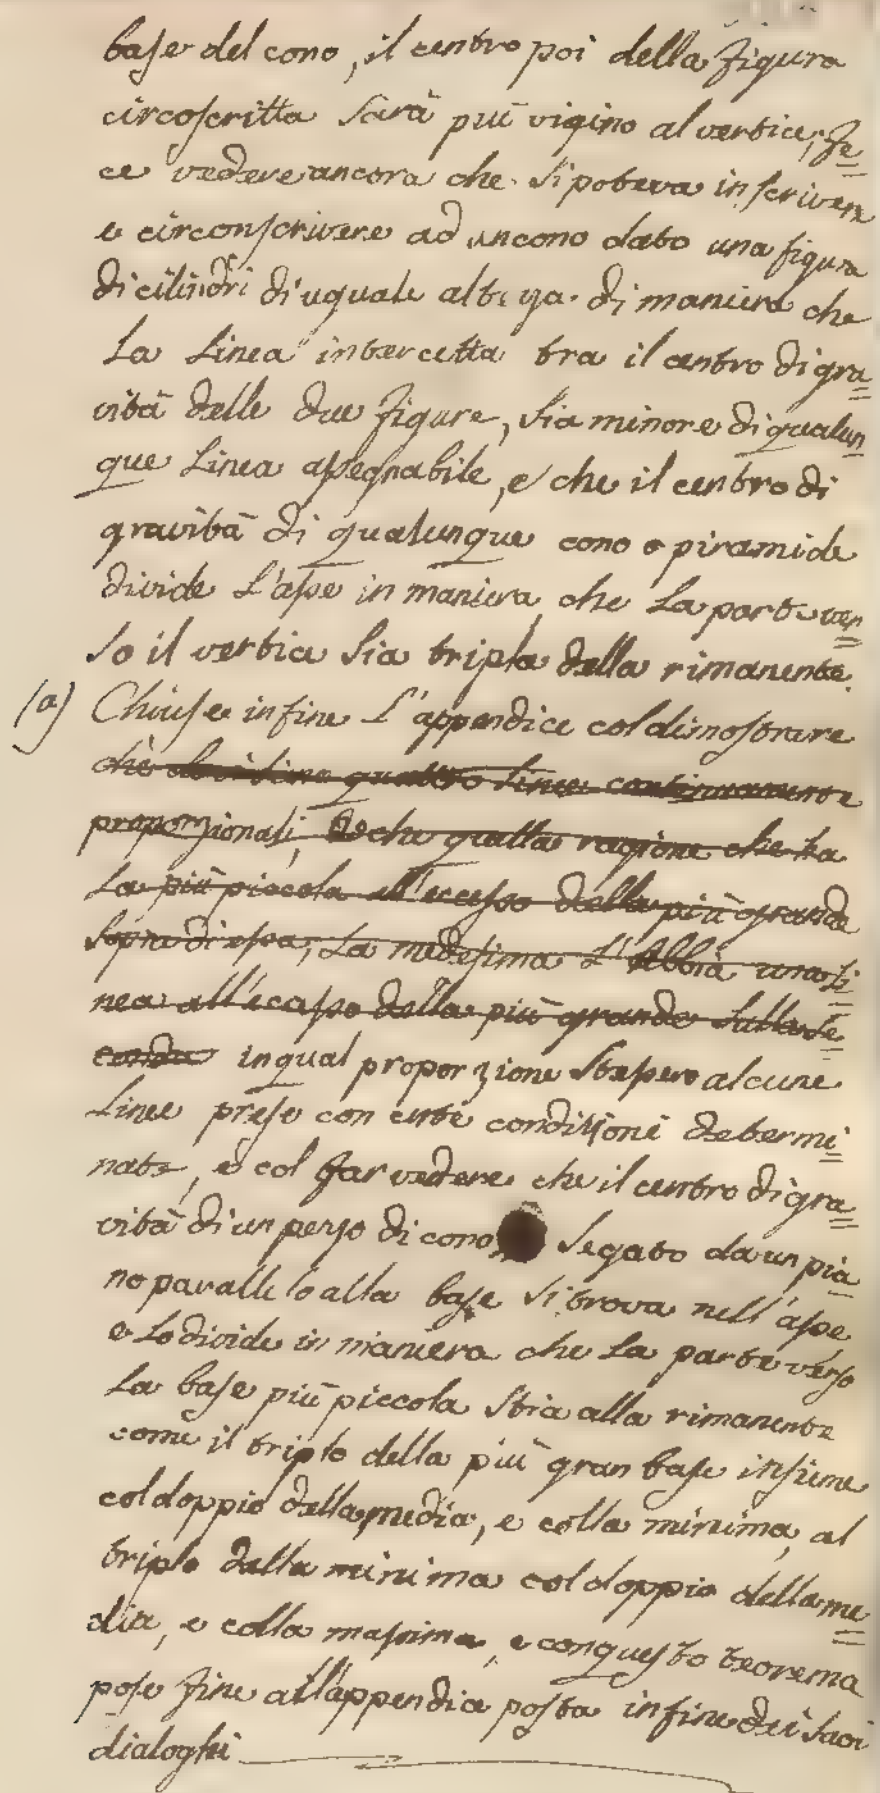 base del cono, il centro poi della figura
circoscritta sarà più vicino al vertice; fe=
ce vedere ancora che si poteva inscrivere
e circonscrivere ad un cono dato una figura
di cilindri di uguale alteza di maniera che
la linea intercetta tra il centro di gra=
vità delle due figure, sia minore di qualun=
que linea assegnabile, e che il centro di
gravità di qualunque cono o piramide
divide l'asse in maniera che la parte ver=
so il vertice sia tripla della rimanente.
(a) Chiuse infine l'appendice col dimostrare
che quattro linee continuamente
proporzionali, che quella ragione che ha
la più piccola all'eccesso della più grande
sopra di essa, la medesima l'abbia una li=
nea all'eccesso della più grande sulla se=
conda in qual proporzione stessero alcune
linee prese con certe condizioni determi=
nate, e col far vedere che il centro di gra=
vità di un pezzo di cono segato da un pia=
no parallelo alla base si trova nell'asse
e lo divide in maniera che la parte verso
la base più piccola stia alla rimanente
come il triplo della più gran base insieme
col doppio della media, e colla minima, al
triplo della minima col doppio della me=
dia, e colla massima, e con questo teorema
pose fine all'appendice posta in fine dei suoi
dialoghi